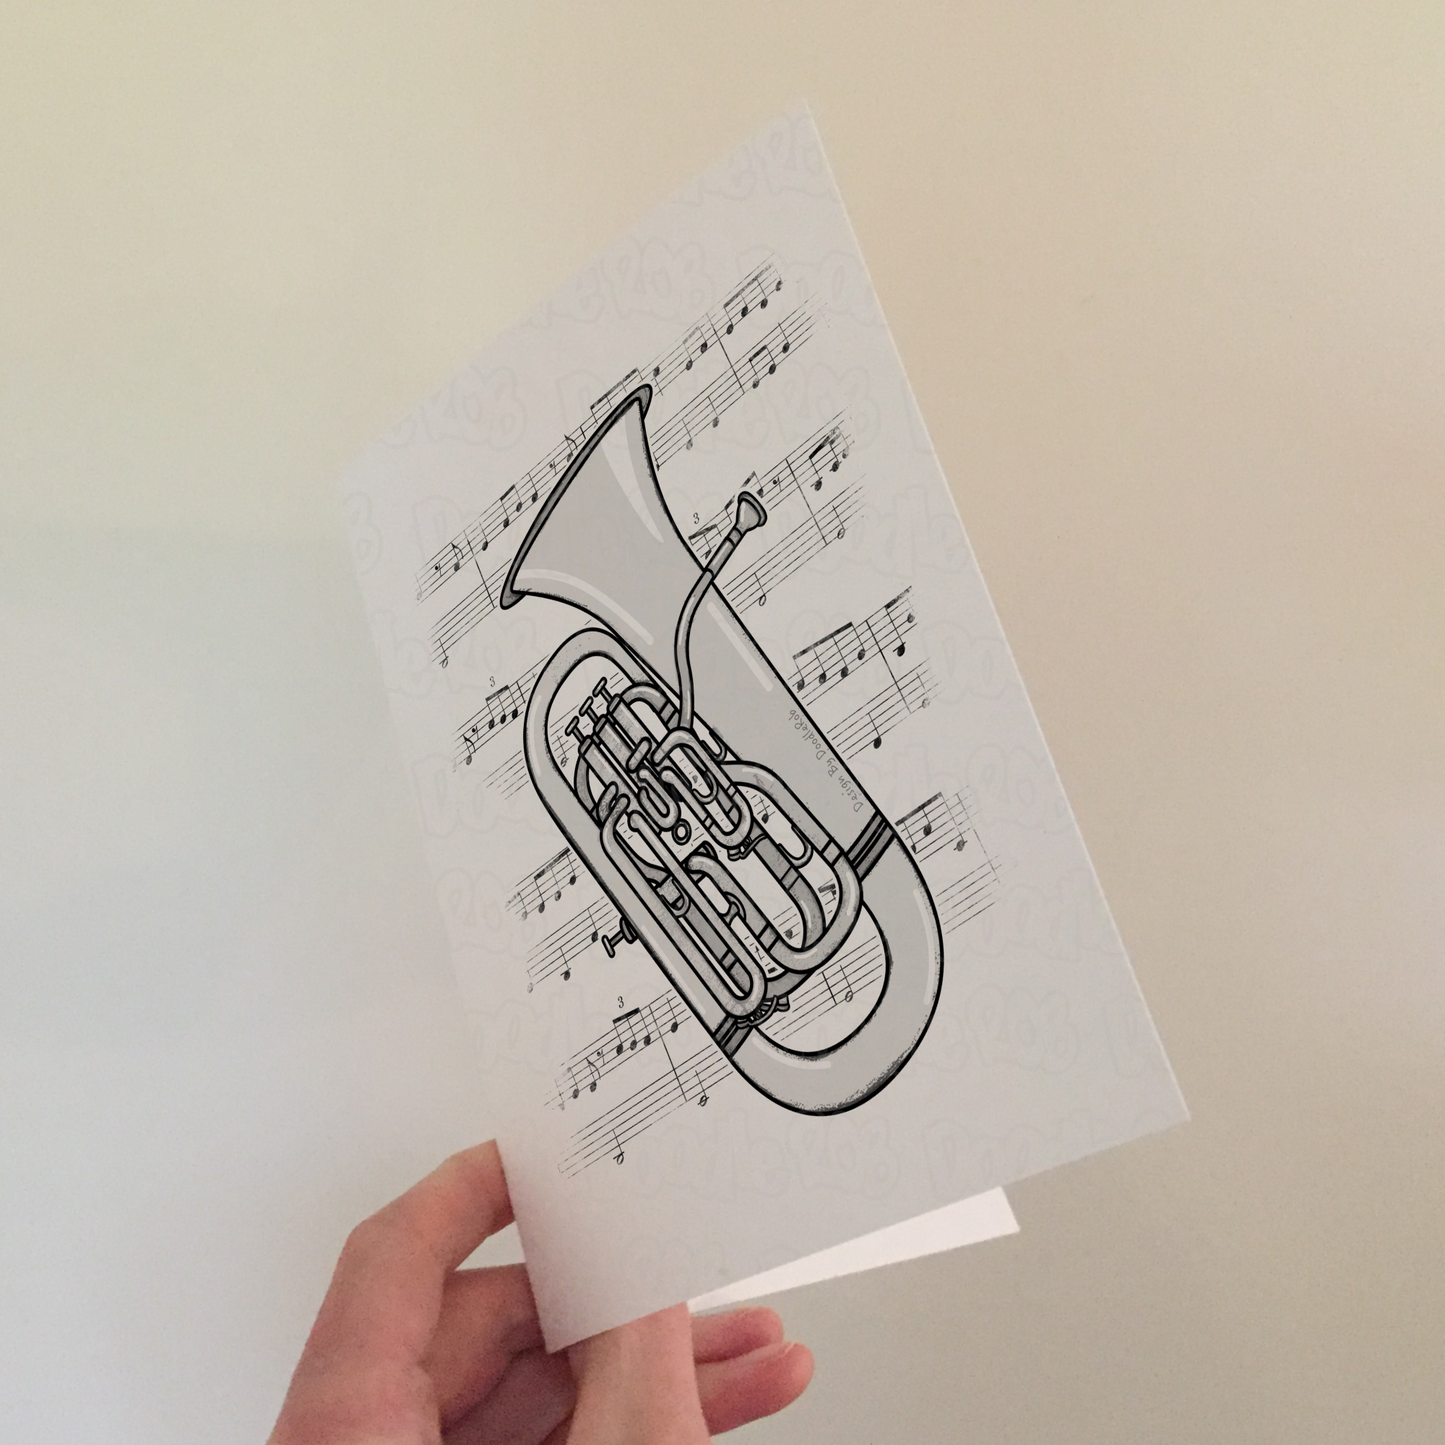 3
3
3
Design By DoodleRob
DoodleRob